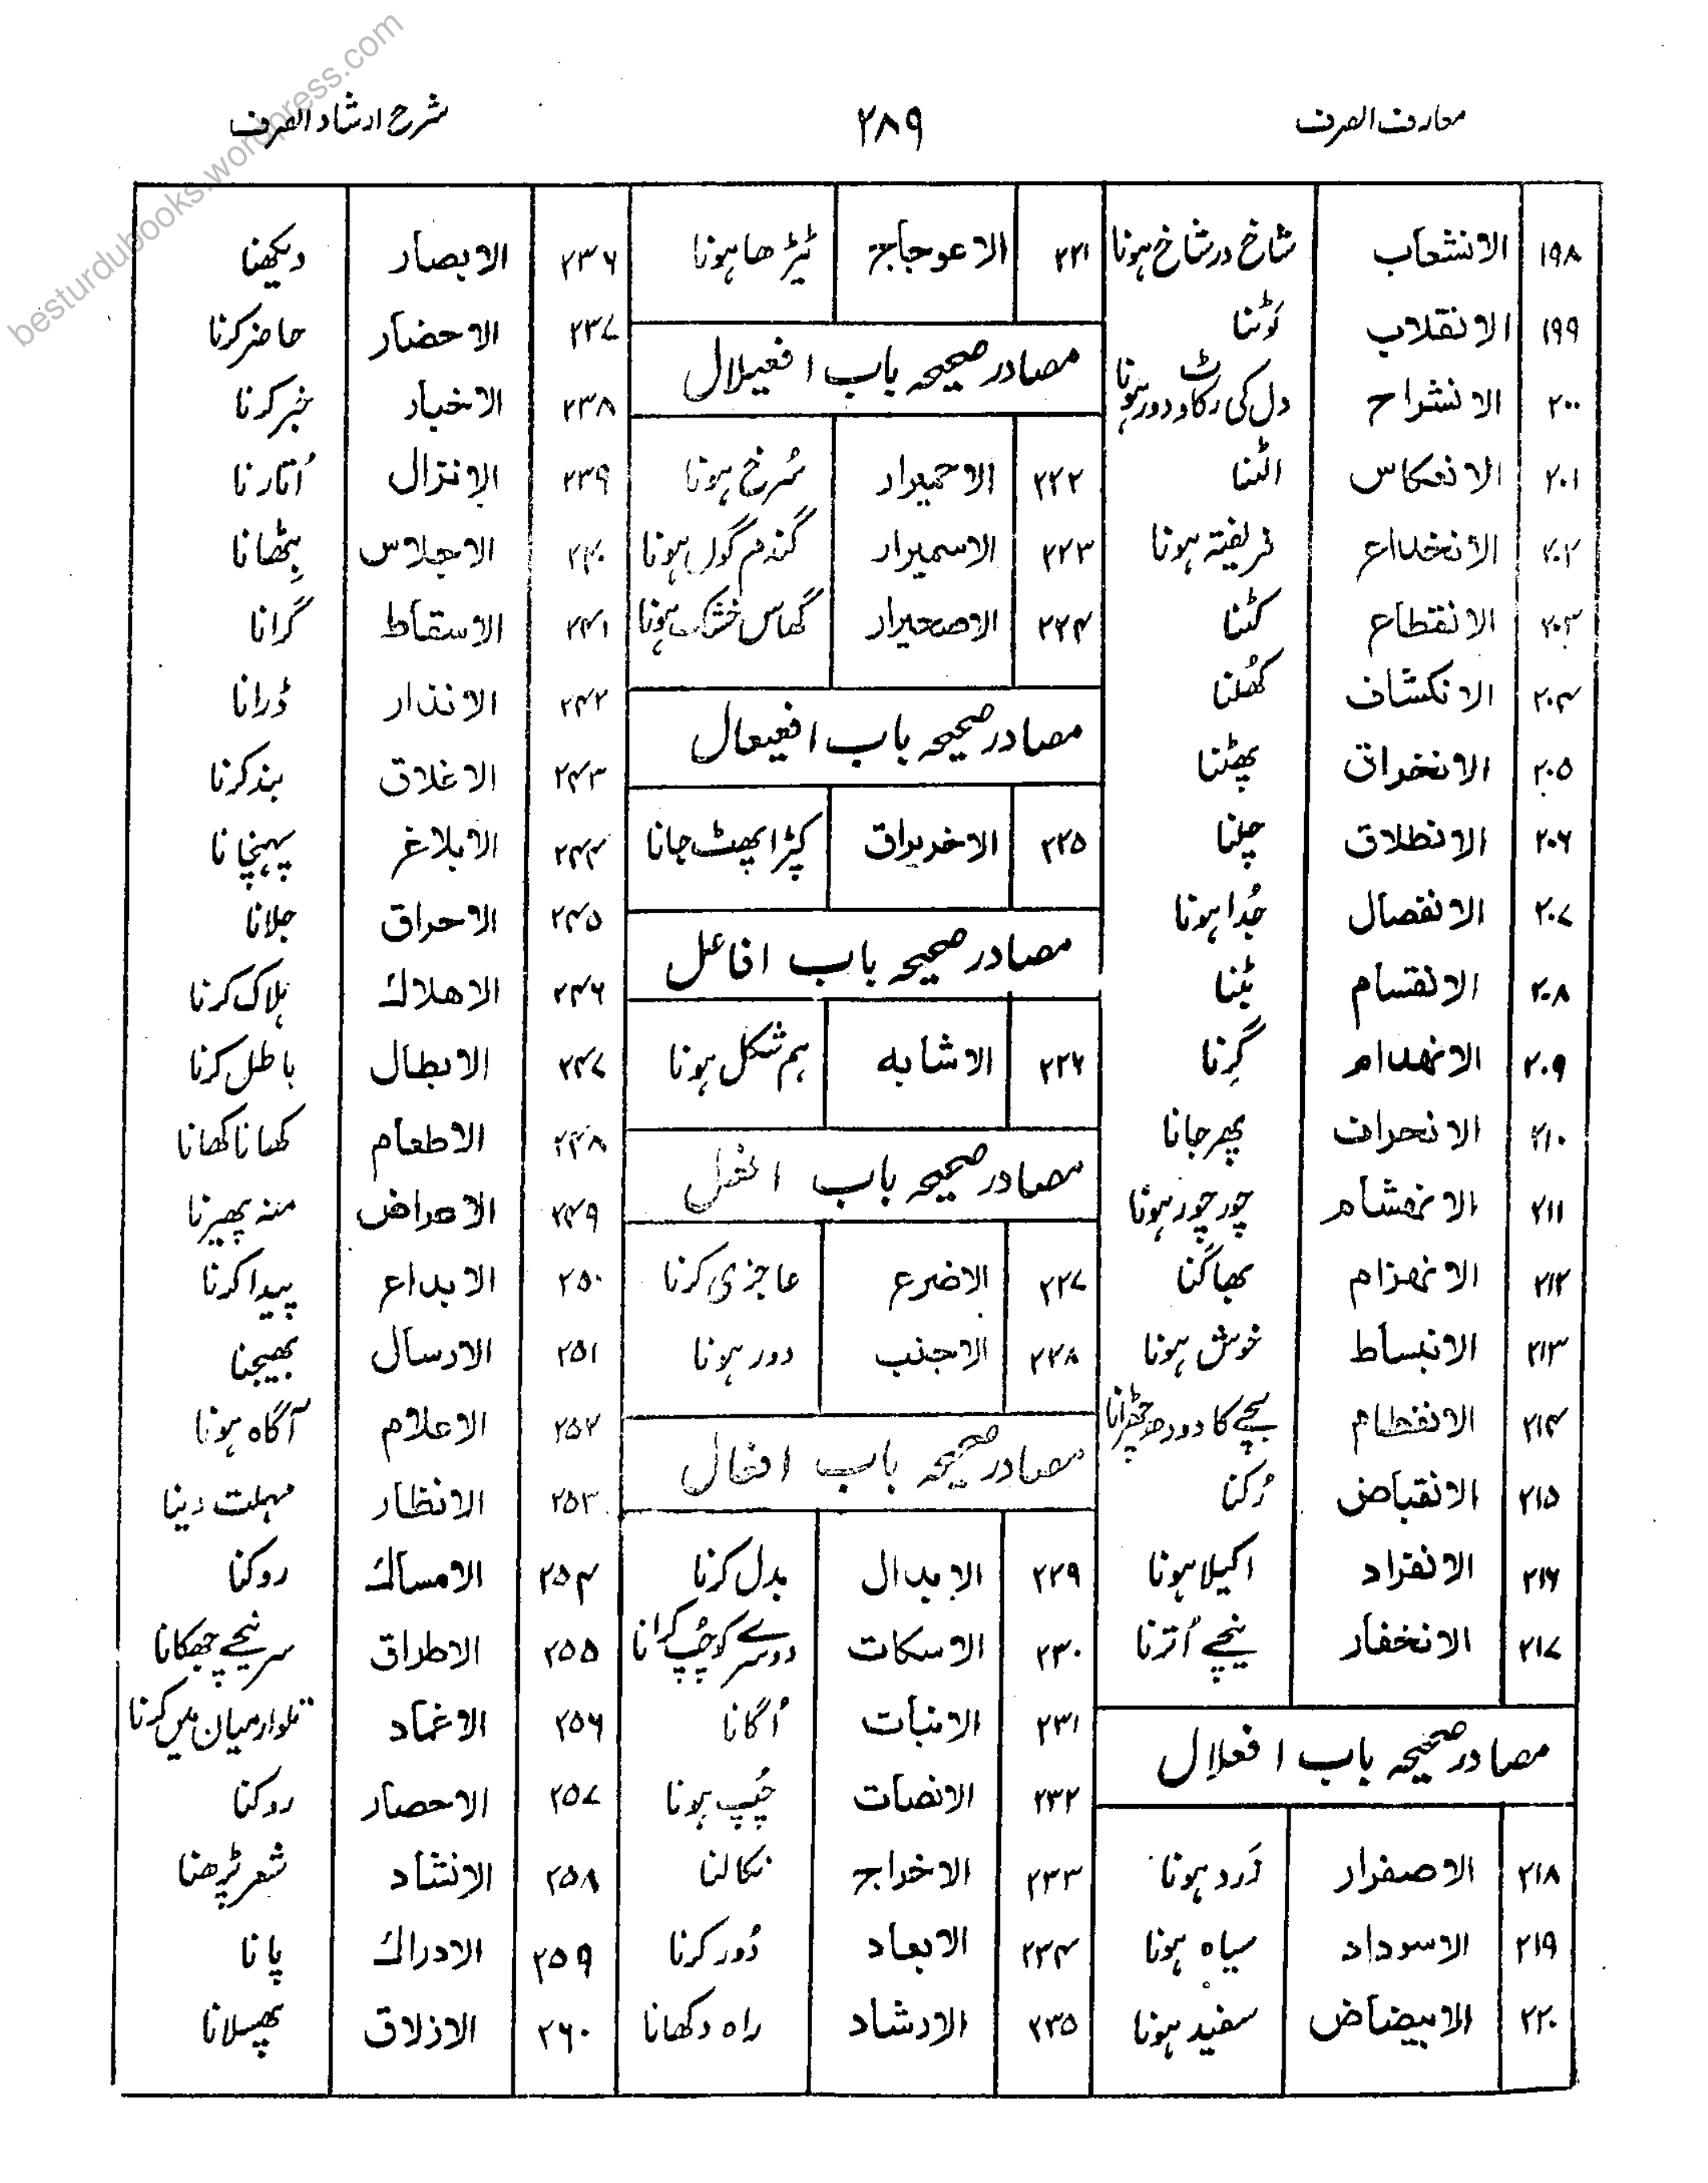 معارف الصرف
۲۸۹
شرح ارشاد الصرف
۱۹۸ الانشعاب شاخ در شاخ ہونا
۱۹۹ الانقلاب لوٹنا
۲۰۰ الانشراح دل کی رکاوٹ دور ہونا
۲۰۱ الانعکاس الٹنا
۲۰۲ الانخداع فریفتہ ہونا
۲۰۳ الانقطاع کٹنا
۲۰۴ الانکشاف کھُلنا
۲۰۵ الانخراق پھٹنا
۲۰۶ الانطلاق چلنا
۲۰۷ الانفصال جُدا ہونا
۲۰۸ الانقسام بٹنا
۲۰۹ الانھدام گِرنا
۲۱۰ الانحراف پھر جانا
۲۱۱ الانھشام چور چور ہونا
۲۱۲ الانھزام بھاگنا
۲۱۳ الانبساط خوش ہونا
۲۱۴ الانفطام بچے کا دودھ چھڑانا
۲۱۵ الانقباض رُکنا
۲۱۶ الانفراد اکیلا ہونا
۲۱۷ الانخفار نیچے اُترنا
مصادر صحیحہ باب افعلال
۲۱۸ الاصفرار زرد ہونا
۲۱۹ الاسوداد سیاہ ہونا
۲۲۰ الابیضاض سفید ہونا
۲۲۱ الاعوجاج ٹیڑھا ہونا
مصادر صحیحہ باب افعیلال
۲۲۲ الاحمیرار سُرخ ہونا
۲۲۳ الاسمیرار گندم گوں ہونا
۲۲۴ الاصحیرار گھاس خشک ہونا
مصادر صحیحہ باب افعیعال
۲۲۵ الاخریراق کپڑا پھٹ جانا
مصادر صحیحہ باب افاعل
۲۲۶ الاشابہ ہم شکل ہونا
مصادر صحیحہ باب افعل
۲۲۷ الاضرع عاجزی کرنا
۲۲۸ الاجنب دور ہونا
مصادر صحیحہ باب افعال
۲۲۹ الابدال بدل کرنا
۲۳۰ الاسکات دوسرے کو چُپ کرانا
۲۳۱ الانبات اُگانا
۲۳۲ الانصات چُپ ہونا
۲۳۳ الاخراج نکالنا
۲۳۴ الابعاد دُور کرنا
۲۳۵ الارشاد راہ دکھانا
۲۳۶ الابصار دیکھنا
۲۳۷ الاحضار حاضر کرنا
۲۳۸ الاخبار خبر کرنا
۲۳۹ الانزال اُتارنا
۲۴۰ الاجلاس بِٹھانا
۲۴۱ الاسقاط گرانا
۲۴۲ الانذار ڈرانا
۲۴۳ الاغلاق بند کرنا
۲۴۴ الابلاغ پہنچانا
۲۴۵ الاحراق جلانا
۲۴۶ الاھلاك ہلاک کرنا
۲۴۷ الابطال باطل کرنا
۲۴۸ الاطعام کھانا کھانا
۲۴۹ الاعراض منہ پھیرنا
۲۵۰ الابداع پیدا کرنا
۲۵۱ الارسال بھیجنا
۲۵۲ الاعلام آگاہ ہونا
۲۵۳ الانظار مہلت دینا
۲۵۴ الامساك روکنا
۲۵۵ الاطراق سر نیچے جھکانا
۲۵۶ الاغماد تلوار میان میں کرنا
۲۵۷ الاحصار روکنا
۲۵۸ الانشاد شعر پڑھنا
۲۵۹ الادراك پانا
۲۶۰ الازلاق پھسلانا
besturdubooks.wordpress.com